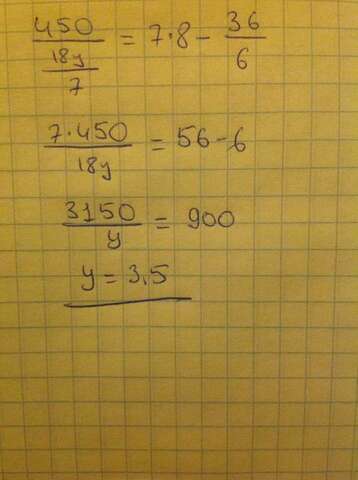 450 / (18y / 7) = 7·8 - 36/6
7·450 / 18y = 56 - 6
3150 / y = 900
y = 3,5